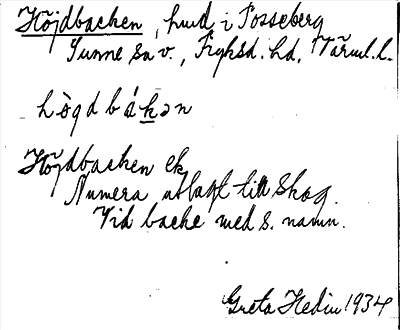 Höjdbacken, hmd i Fosseberg
Sunne sn v., Fryksd. hd, Värml. l.
hògdbákən
Höjdbacken ek
Numera utlagt till skog.
Vid backe med s. namn.
Greta Hedin 1934